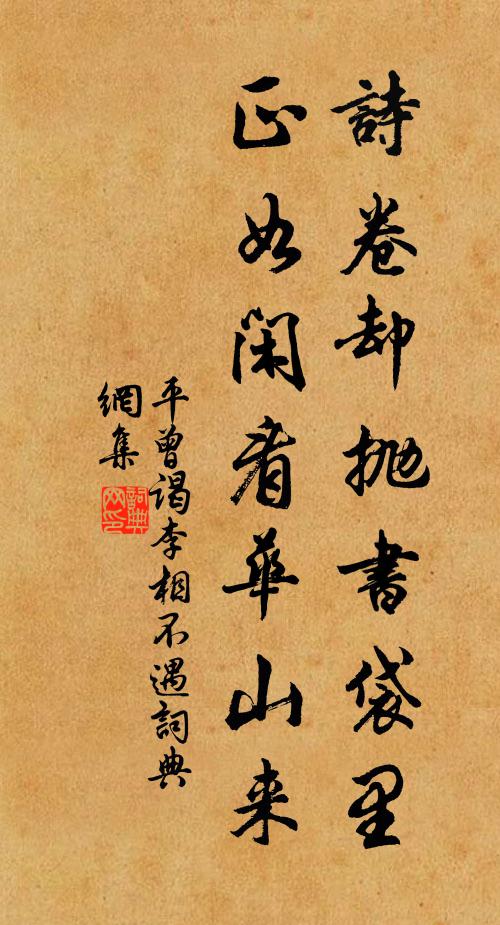 詩卷却抛書袋里
正如閑看華山来
平曾謁李相不遇詞典
網集
詞典
网印